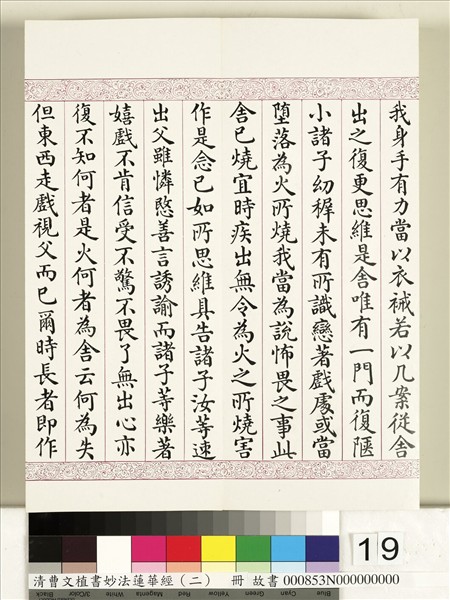 我身手有力當以衣裓若以几案從舍
出之復更思維是舍唯有一門而復陿
小諸子幼稺未有所識戀著戲處或當
墮落為火所燒我當為說怖畏之事此
舍已燒宜時疾出無令為火之所燒害
作是念已如所思維具告諸子汝等速
出父雖憐愍善言誘諭而諸子等樂著
嬉戲不肯信受不驚不畏了無出心亦
復不知何者是火何者為舍云何為失
但東西走戲視父而已爾時長者即作
19
Blue Cyan Green Yellow Red Magenta White 3/Color Black
清曹文植書妙法蓮華經（二） 冊 故書 000853N000000000